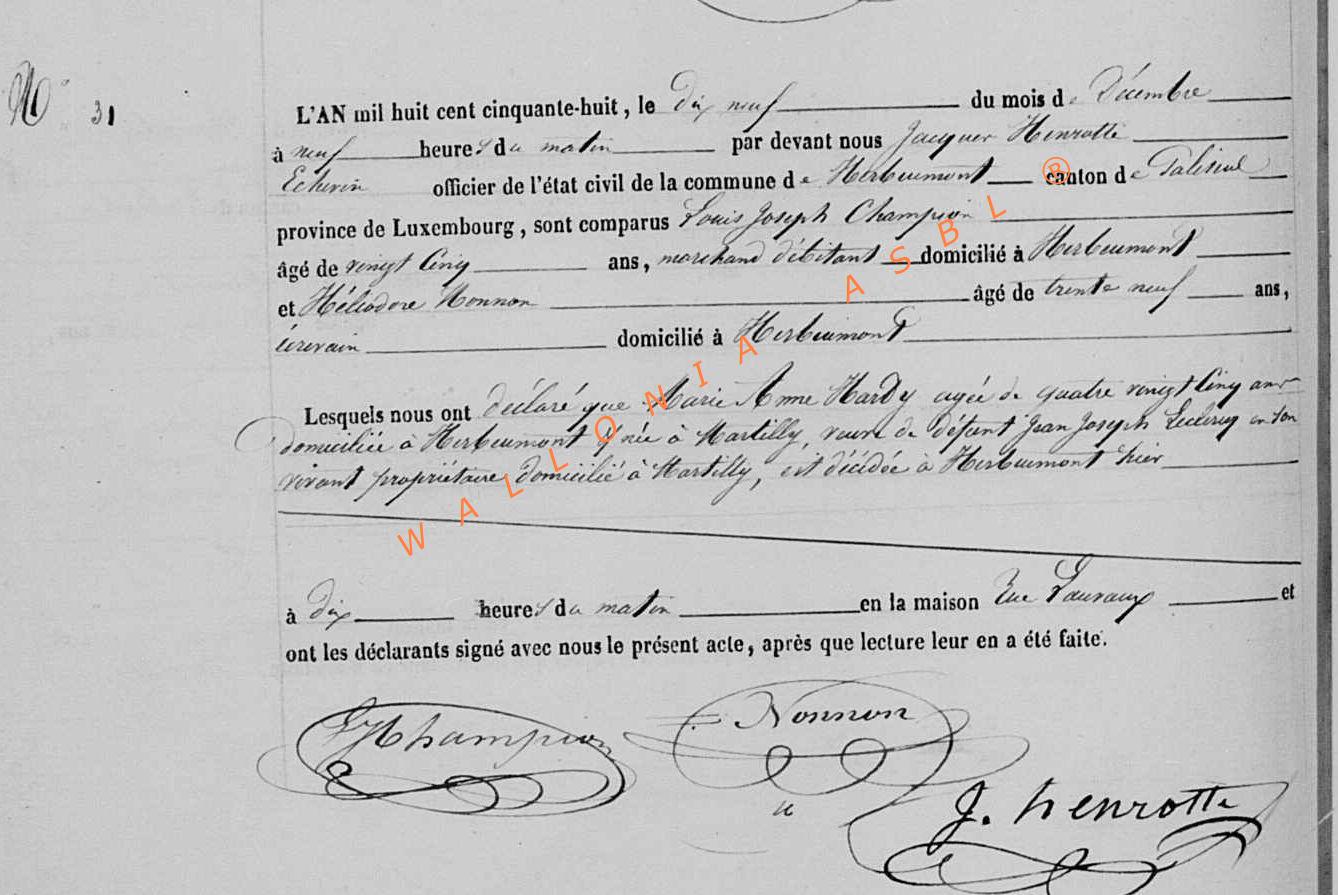 N° 31
L'AN mil huit cent cinquante-huit, le dix neuf du mois de Décembre
à neuf heures du matin par devant nous Jacques Henrotte
Echevin officier de l'état civil de la commune de Herbeumont canton de Paliseul
province de Luxembourg, sont comparus Louis Joseph Champion
âgé de vingt cinq ans, marchand débitant domicilié à Herbeumont
et Héliodore Nonnon âgé de trente neuf ans,
écrivain domicilié à Herbeumont
Lesquels nous ont déclaré que Marie Anne Hardy agée de quatre vingt cinq ans
domiciliée à Herbeumont née à Martilly, veuve de défunt Jean Joseph Leclercq en son
vivant propriétaire domicilié à Martilly, est décédée à Herbeumont hier
à dix heures du matin en la maison Rue Lauvaux et
ont les déclarants signé avec nous le présent acte, après que lecture leur en a été faite.
Champion
Nonnon
J. henrotte
WALLONIA ASBL ®